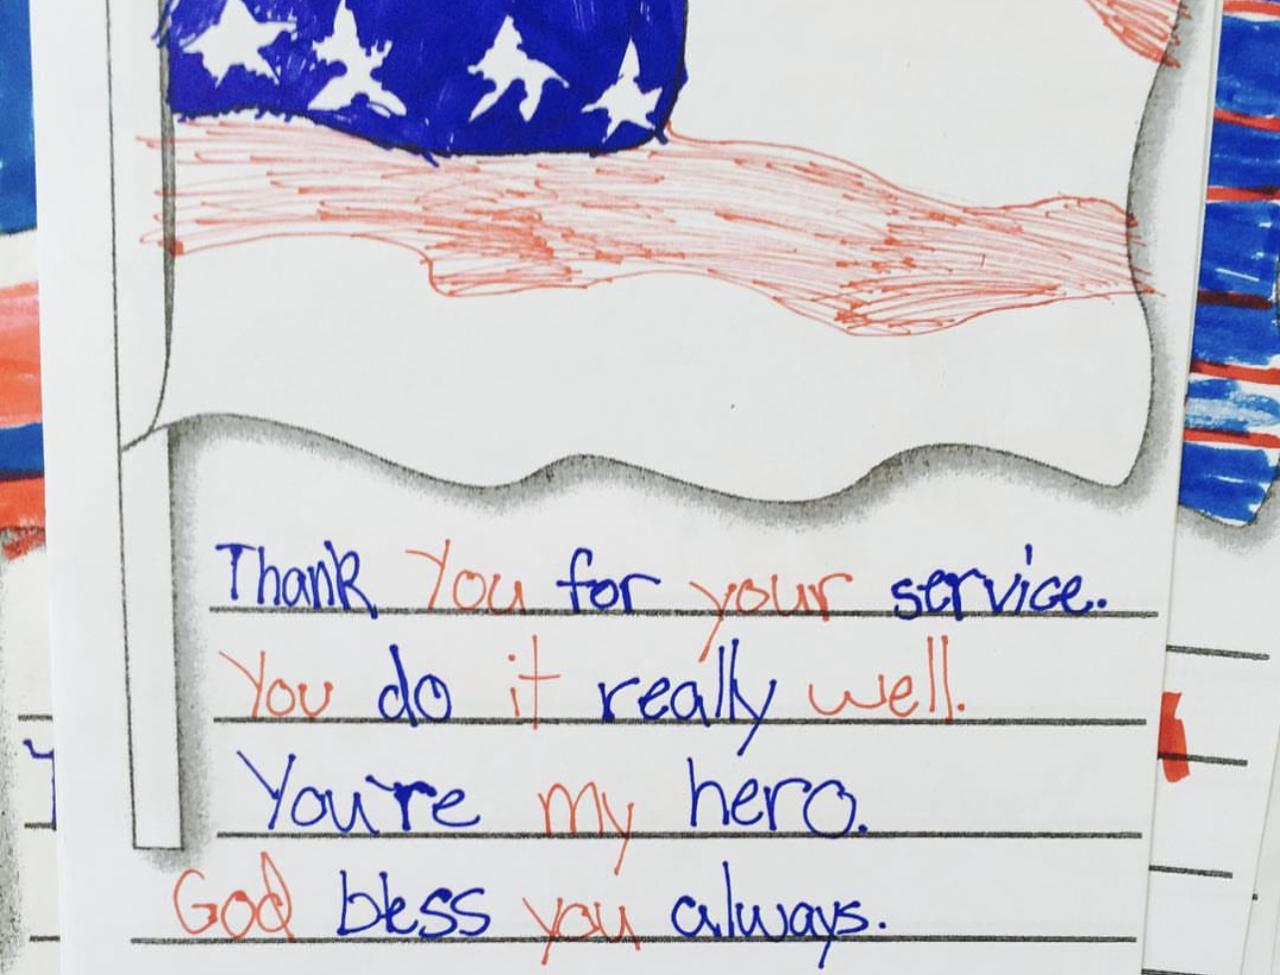 Thank You for your service.
You do it really well.
You're my hero.
God bless you always.